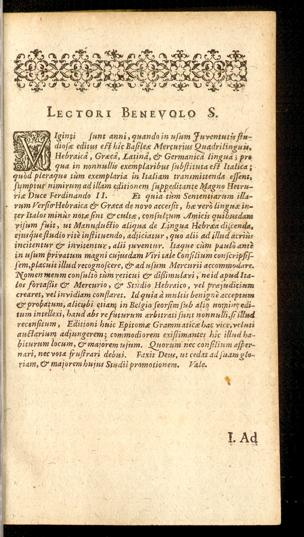 LECTORI BENEVOLO S.
VIginti sunt anni, quando in usum Juventutis stu-
diosæ editus est hic Basileæ Mercurius Quadrilinguis,
Hebraicâ, Græcâ, Latinâ, & Germanicâ linguâ; pro
qua in nonnullis exemplaribus substituta est Italica;
quòd pleraque tùm exemplaria in Italiam transmittenda essent,
sumptus nimirum ad illam editionem suppeditante Magno Hetru-
riæ Duce Ferdinando II. Et quia tùm Sententiarum illa-
rum Versio Hebraica & Græca de novo accessit, hæ verò linguæ in-
ter Italos minùs notæ sint & cultæ, consultum Amicis quibusdam
visum fuit, ut Manuductio aliqua de Lingua Hebræa discenda,
ejusque studio ritè instituendo, adjiciatur, quo alii ad illud acriùs
incitentur & invitentur, alii juventur. Itaque cùm paulò antè
in usum privatum magni cujusdam Viri tale Consilium conscripsis-
sem, placuit illud recognoscere, & ad usum Mercurii accommodare.
Nomen meum consultò tùm reticui & dissimulavi, ne id apud Ita-
los fortassis & Mercurio, & Studio Hebraico, vel præjudicium
crearet, vel invidiam conflaret. Id quia à multis benignè acceptum
& probatum, alicubi etiam in Belgio seorsim sub alio nomine edi-
tum intellexi, haud abs re futurum arbitrati sunt nonnulli, si illud
recensitum, Editioni huic Epitomæ Grammaticæ hac vice, veluti
auctarium adjungerem; commodiorem existimantes hîc illud ha-
biturum locum, & majorem usum. Quorum nec consilium asper-
nari, nec vota frustrari debui. Faxit Deus, ut cedat ad suam glo-
riam, & majorem hujus Studii promotionem. Vale.
I. Ad